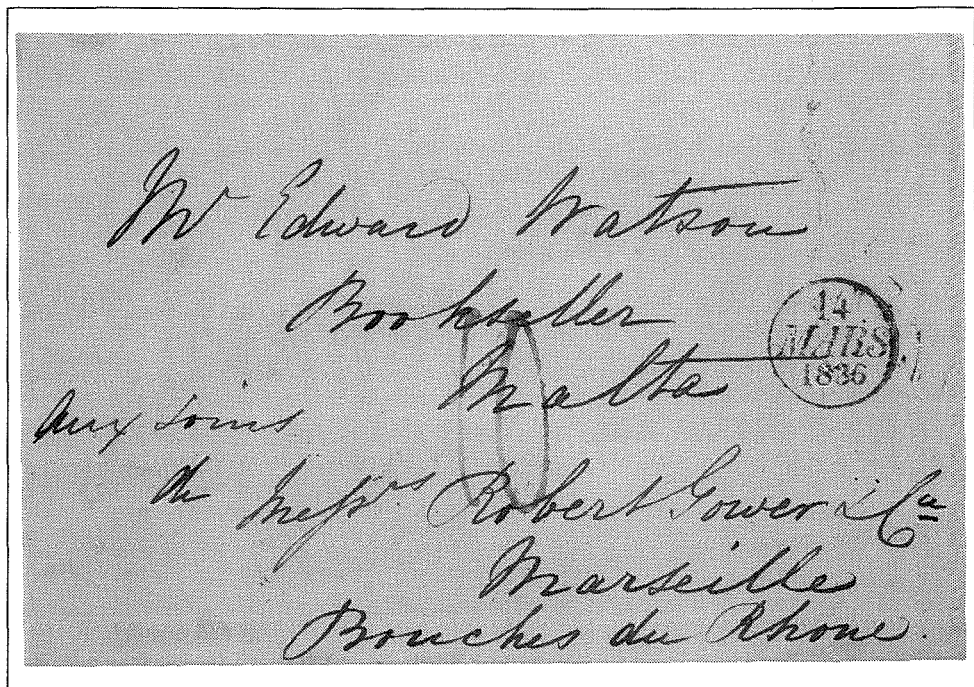 Mr Edward Watson
Bookseller
Malta
14
MARS
1836
aux soins
de Messrs Robert Gower & Co
Marseille
Bouches du Rhone.